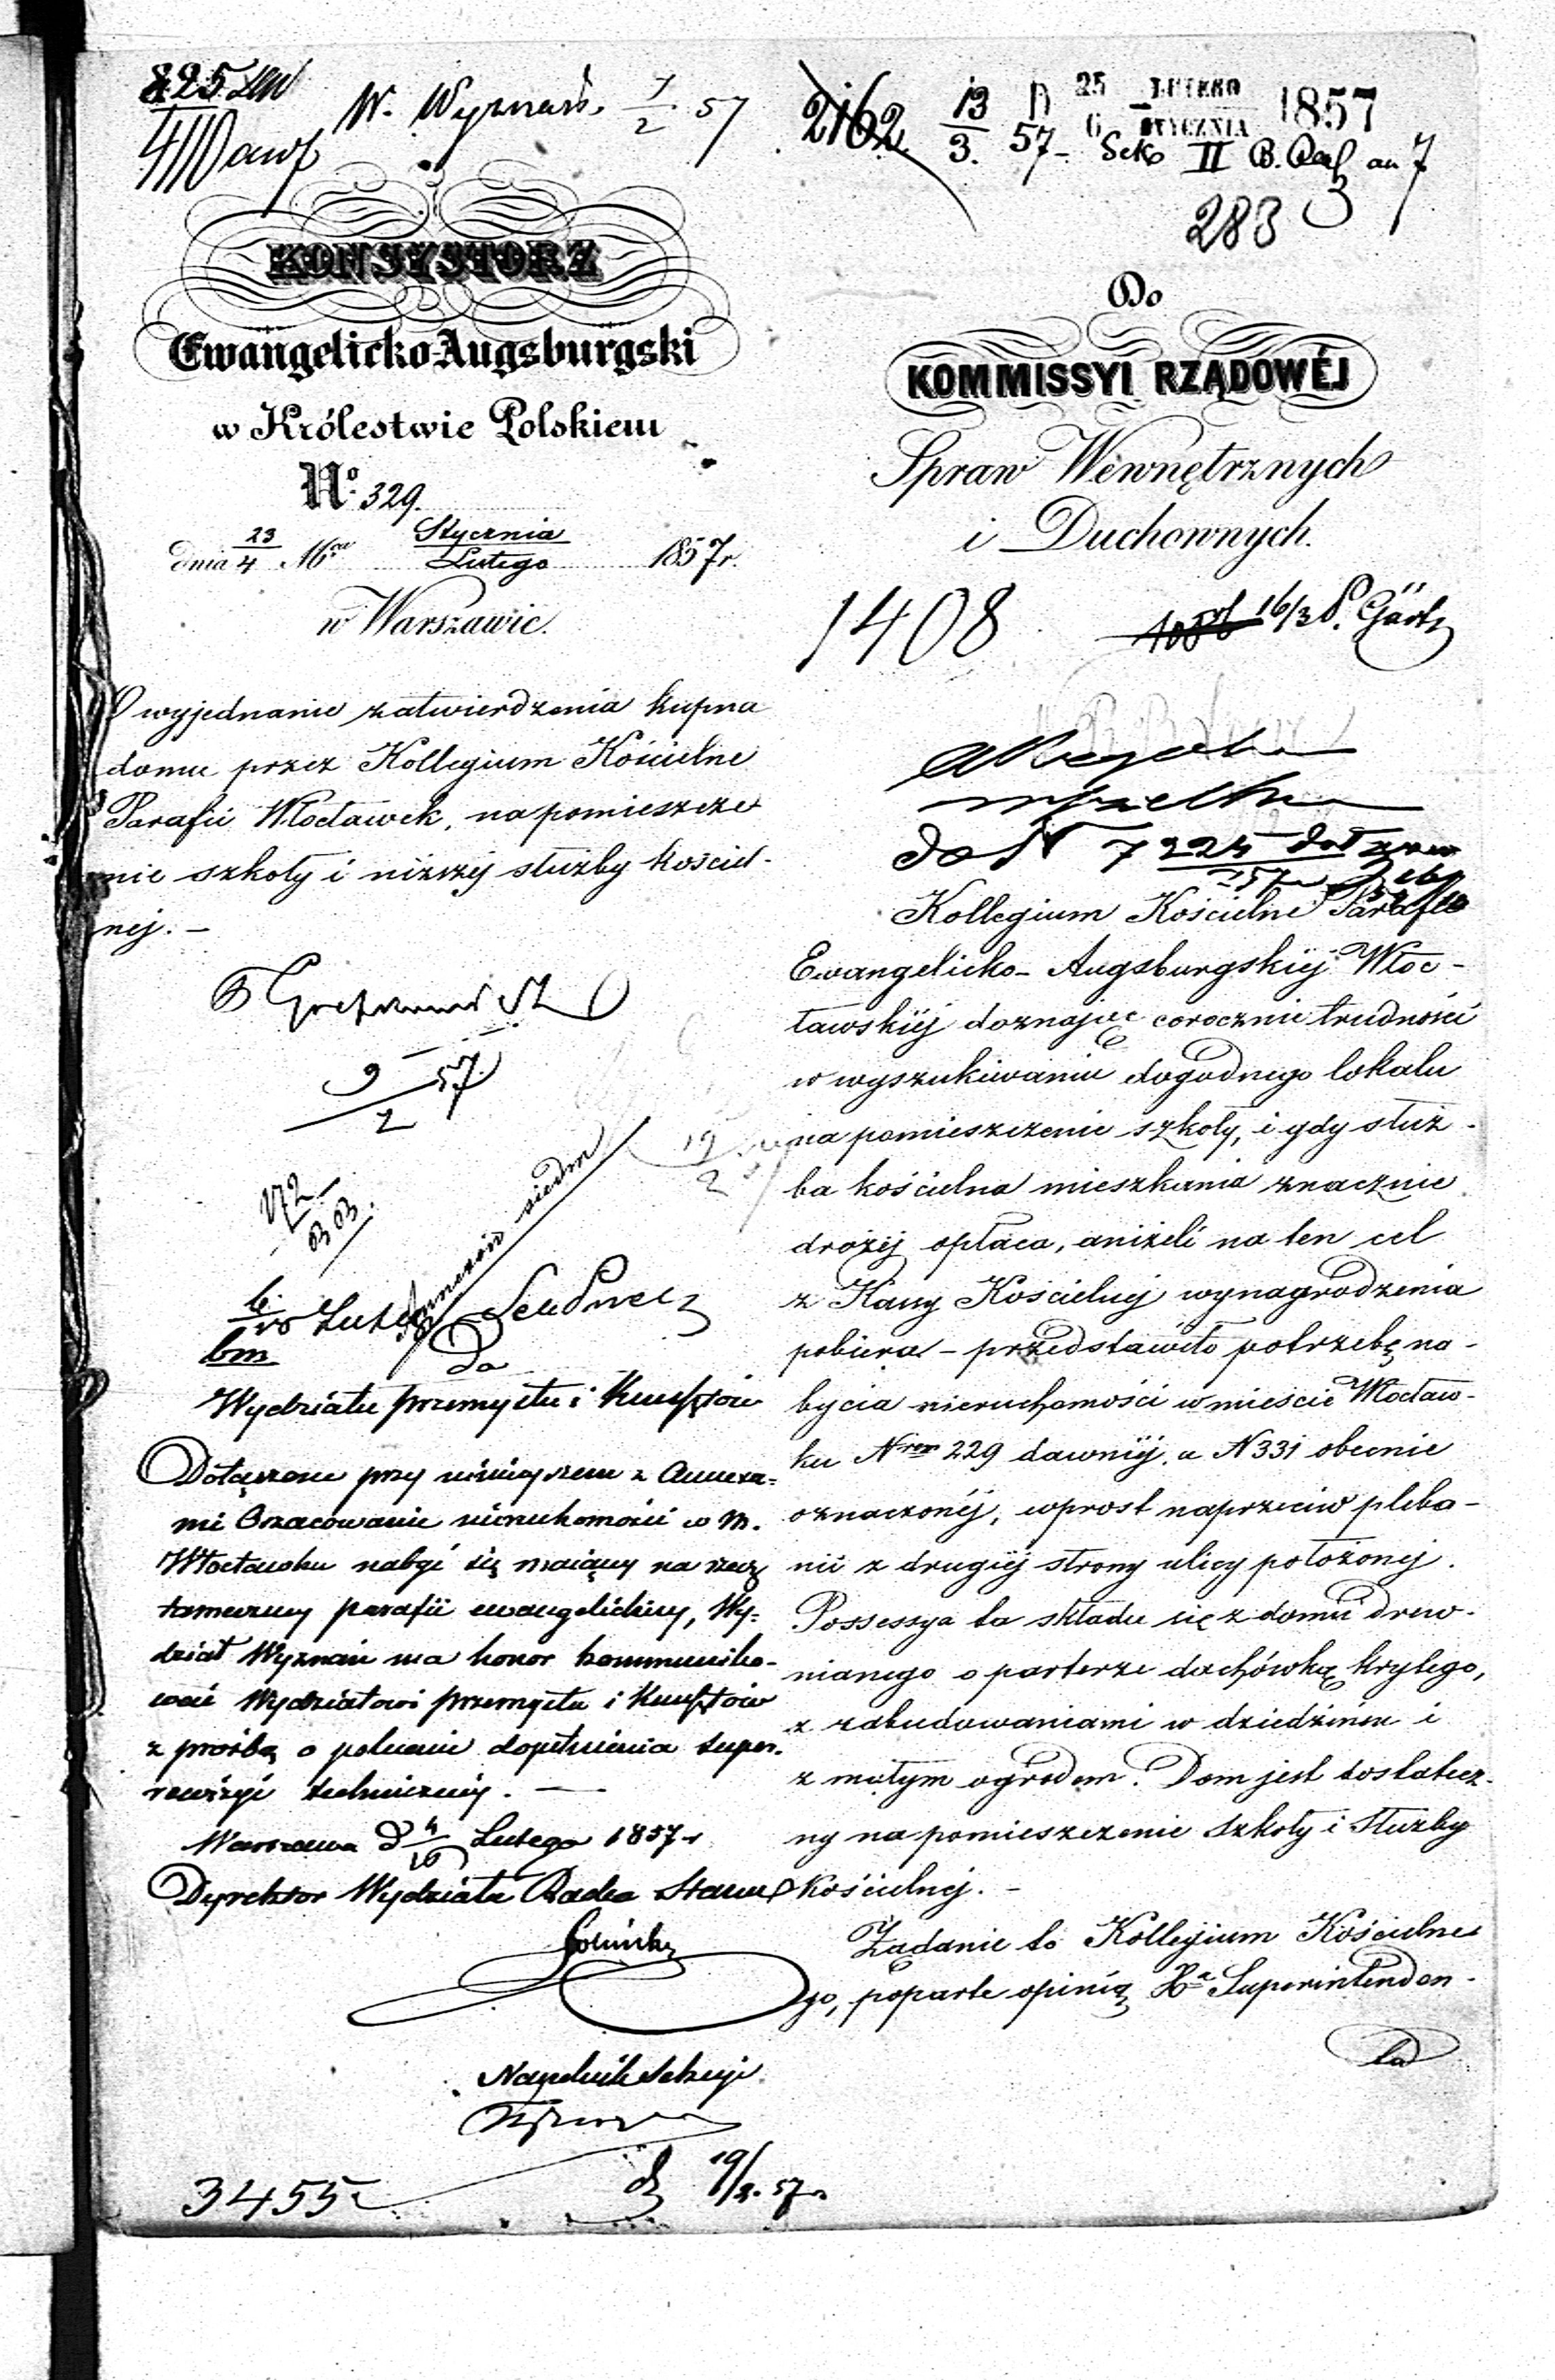 825
W. Wyznań 7/2 57
KONSYSTORZ
Ewangelicko-Augsburgski
w Królestwie Polskiem
No. 329.
dnia 23/4 Mca Stycznia/Lutego 1857 r.
w Warszawie.
O wyjednanie zatwierdzenia kupna
domu przez Kollegium Kościelne
Parafii Włocławek, na pomieszcze
nie szkoły i niższej służby kościel-
nej. –
9/2 57
Do
Wydziału przemysłu i Kunsztów
Dołączone przy niniejszem z Annexa-
mi Oszacowanie nieruchomości w M.
Włocławku nabyć się mającej na rzecz
tamecznej parafii ewangelickiej, Wy-
dział Wyznań ma honor kommuniko-
wać Wydziałowi przemysłu i Kunsztów
z prośbą o polecenie dopełnienia super-
rewizyi technicznej. –
Warszawa d 4/16 Lutego 1857 r
Dyrektor Wydziału Radca Stanu
Naczelnik Sekcyi
3455
19/2. 57
2162 13/3. 57 25 LUTEGO 1857
6 STYCZNIA
Sek II B.
283
Do
KOMMISSYI RZĄDOWÉJ
Spraw Wewnętrznych
i Duchownych.
1408 16/3
do N 7225
Kollegium Kościelne Parafii
Ewangelicko-Augsburgskiej Włoc-
ławskiej doznając corocznie trudności
w wyszukiwaniu dogodnego lokalu
na pomieszczenie szkoły, i gdy służ-
ba kościelna mieszkania znacznie
drożej opłaca, aniżeli na ten cel
z Kassy Kościelnej wynagrodzenia
pobiera – przedstawiło potrzebę na-
bycia nieruchomości w mieście Włocław-
ku Nrem 229 dawniej, a N 331 obecnie
oznaczonéj, wprost naprzeciw pleba-
nii z drugiej strony ulicy położonej.
Possessya ta składa się z domu drew-
nianego o parterze dachówką krytego,
z zabudowaniami w dziedzińcu i
z małym ogrodem. Dom jest dostatecz-
ny na pomieszczenie szkoły i służby
kościelnej. –
Żądanie to Kollegium Kościelne
go, poparte opinią Xa Superintenden-
ta